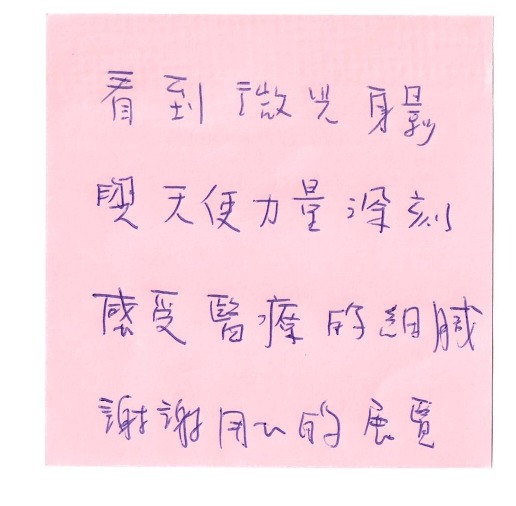 看到微光身影
與天使力量深刻
感受醫療的細膩
謝謝用心的展覽